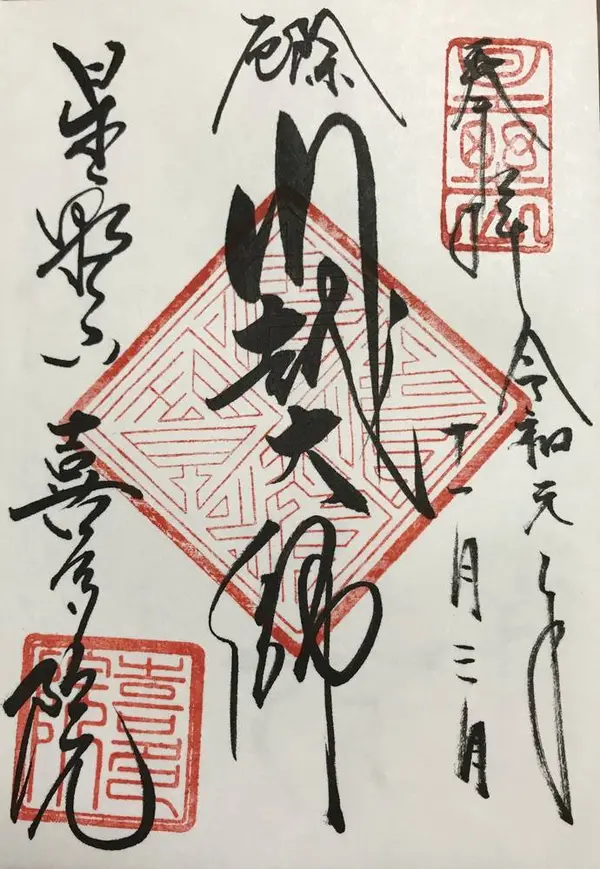 奉拝
令和元年
十一月三日
厄除
川越大師
星野山
喜多院
喜多院